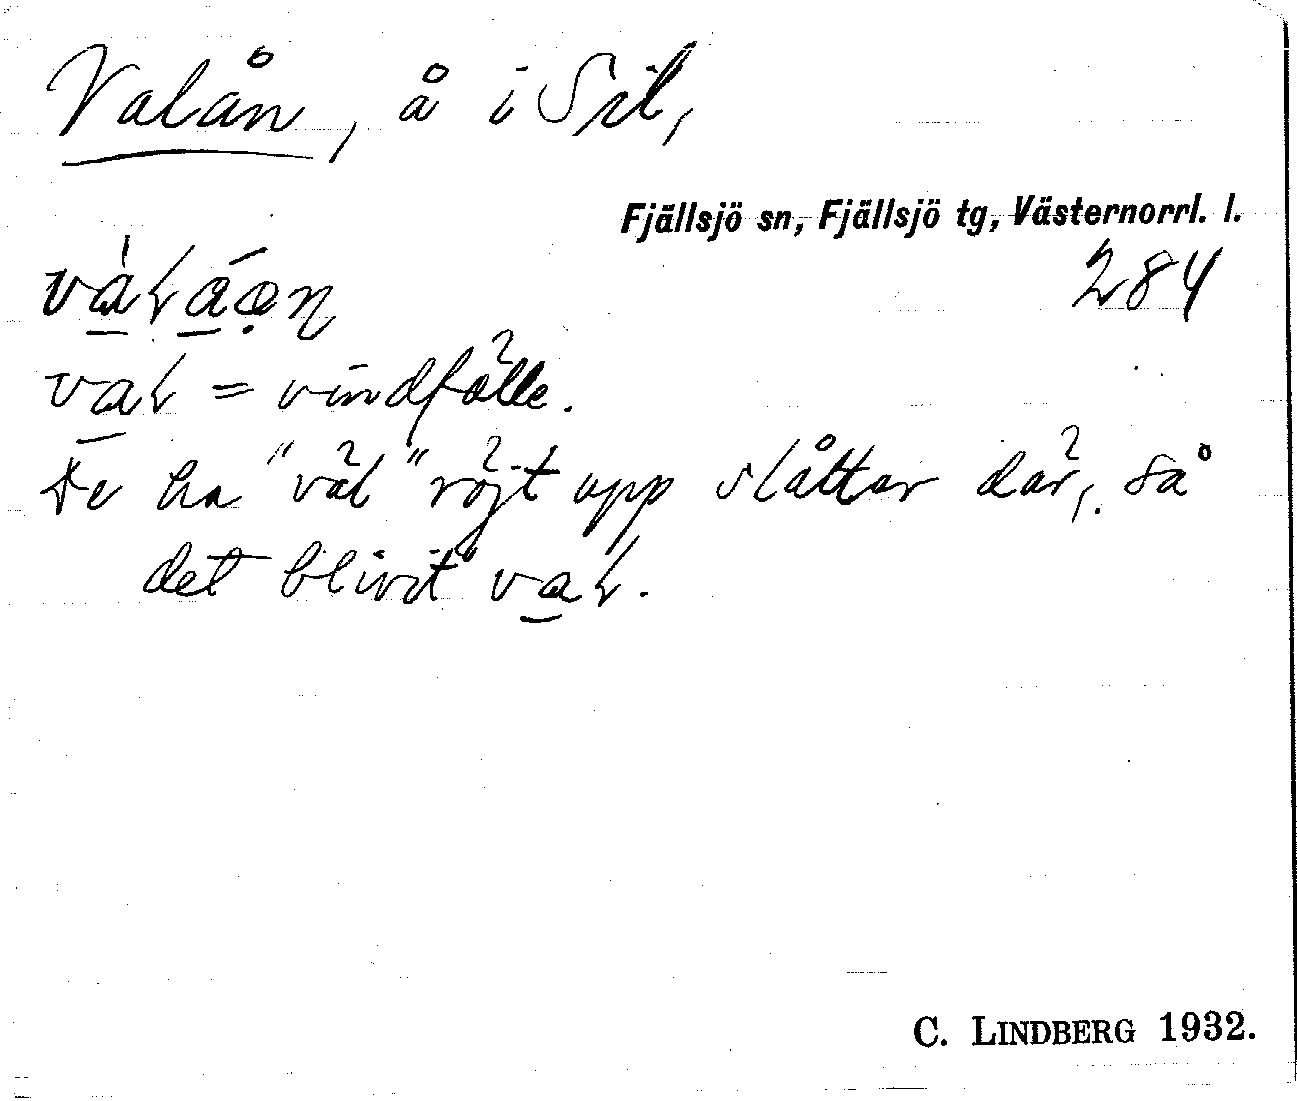 Valån, å i Sil,
Fjällsjö sn, Fjällsjö tg, Västernorrl. l.
284
val = vindfälle.
De ha "väl" röjt upp slåtter där, så
det blivit val.
C. LINDBERG 1932.